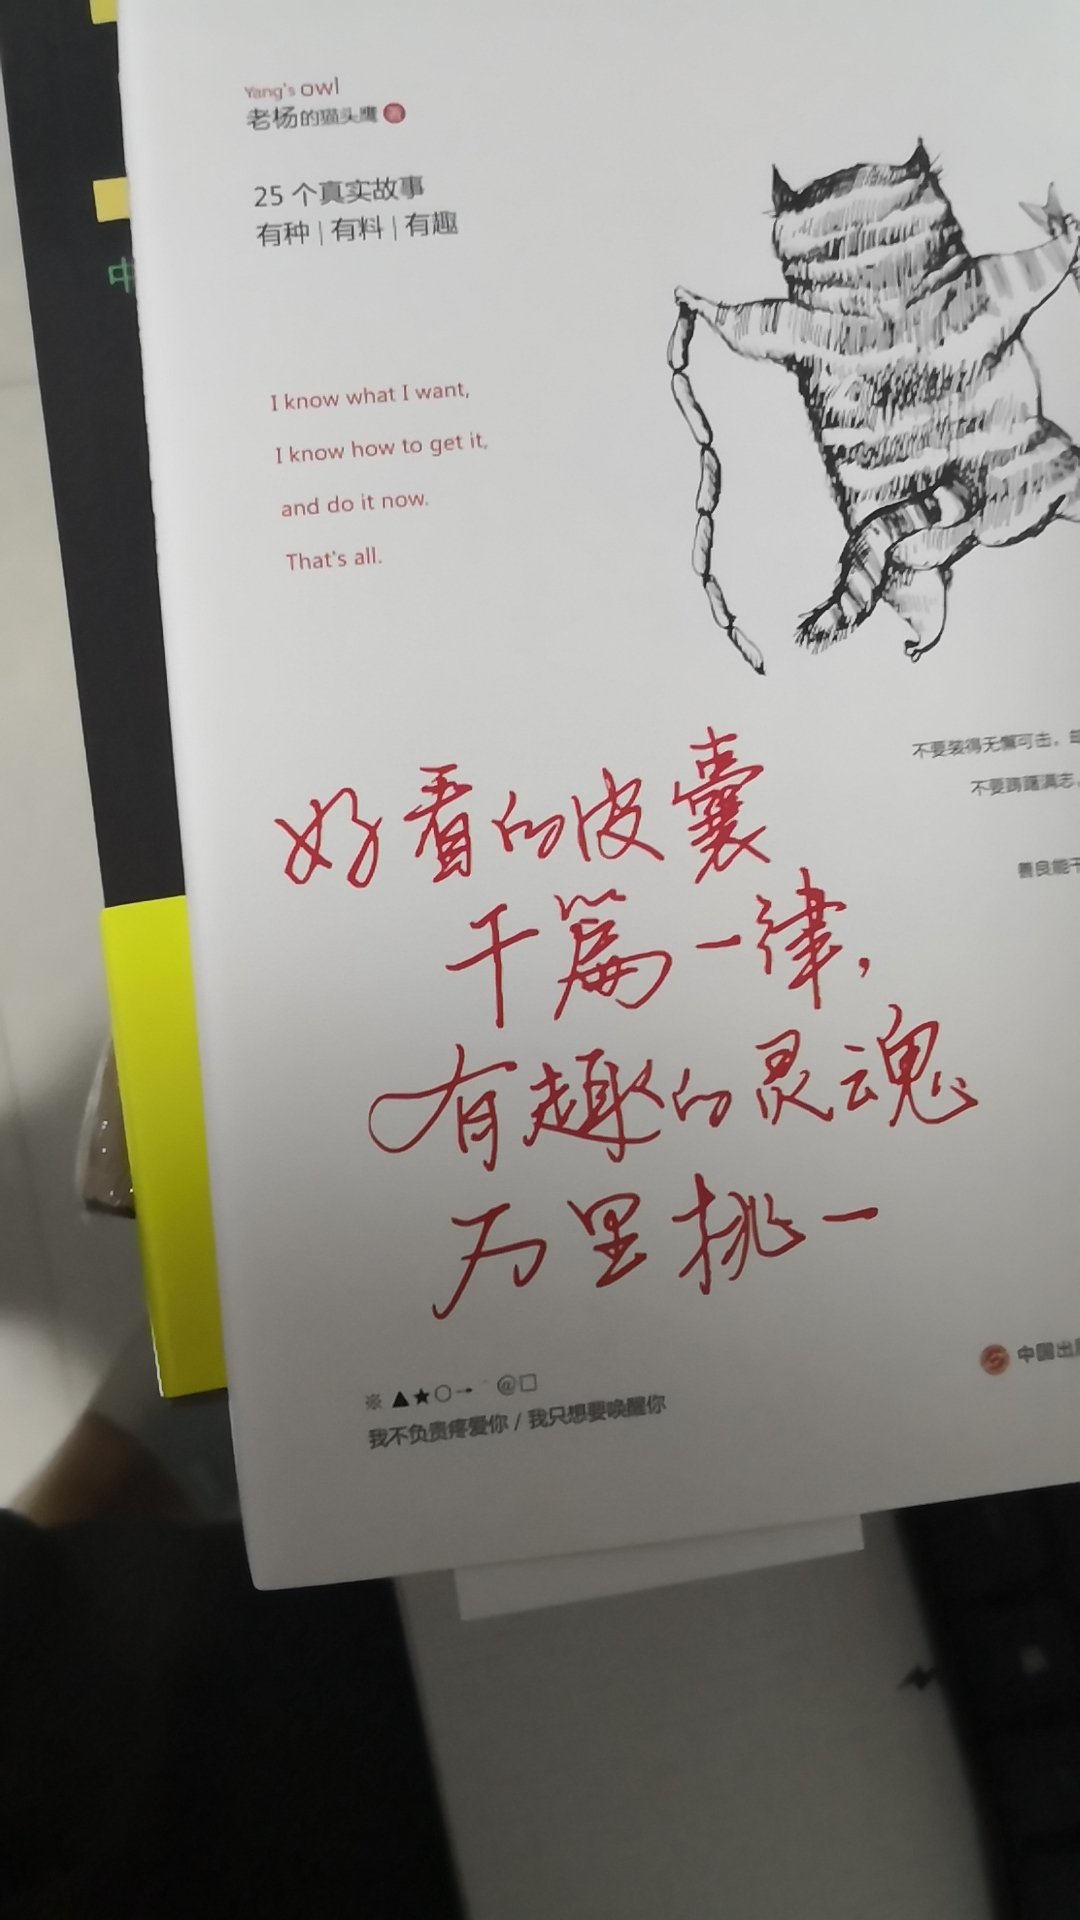 Yang's owl
老杨的猫头鹰 著
25 个真实故事
有种 | 有料 | 有趣
I know what I want,
I know how to get it,
and do it now.
That's all.
不要装得无懈可击,
不要踌躇满志,
善良能
好看的皮囊
千篇一律,
有趣的灵魂
万里挑一
中国出
※ ▲★○→ @□
我不负责疼爱你 / 我只想要唤醒你
中